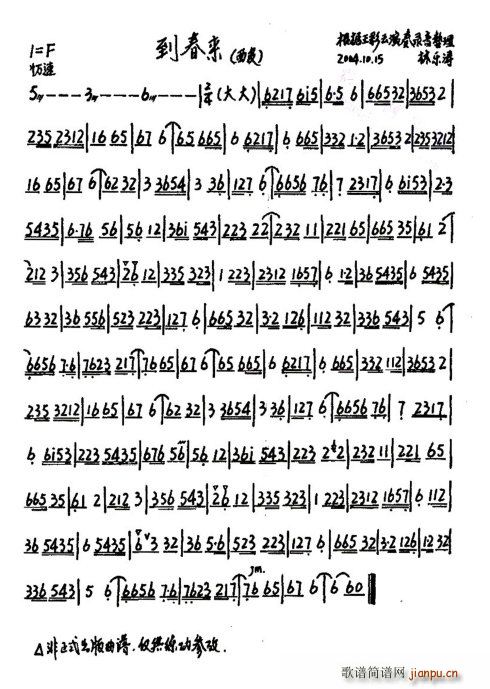 到春来(西皮)
1=F
根据王彩云演奏录音整理
2004.10.15 林乐涛
5 --- 3 --- 6 --- | 2/4 (大大) | 6217 6i5 | 6·5 6 | 66532 | 36532 |
235 2312 | 16 65 | 67 6 | 65 665 | 6 6217 | 6 665 | 332 1·2 | 36532 | 2353212 |
16 65 | 67 6 | 62 32 | 3 3654 | 3 36 | 127 6 | 6656 76 | 7 2317 | 6 6i53 | 2·3
5435 | 6·76 56 | 56 12 | 36i 543 | 223 22 | 232 11 | 221 65 | 665 35 | 61 2
212 3 | 356 543 | 26 12 | 335 323 | 1 223 | 2312 1657 | 6 1·2 | 36 5435 | 6 5435 |
63 32 | 36 556 | 523 223 | 127 6 | 665 32 | 3·2 126 | 112 32 | 336 543 | 5 6
6656 7·6 | 7623 217 | 76 65 | 67 6 | 65 665 | 6 6217 | 6 665 | 332 112 | 36532 |
235 3212 | 16 65 | 67 6 | 62 32 | 3 3654 | 3 36 | 127 6 | 6656 76 | 7 2317 |
6 6i53 | 223 5435 | 676 56 | 56 12 | 36i 543 | 223 2·2 | 232 11 | 221 65
665 35 | 61 2 | 212 3 | 356 543 | 26 12 | 335 323 | 1 223 | 2312 1657 | 6 112
36 5435 | 6 5435 | 6 3 32 | 36 5·6 | 523 223 | 127 6 | 665 32 | 3·2 126 | 12 32
336 543 | 5 6 | 6656 7·6 | 7623 217 | 76 65 | 67 6 | 6 60 ‖
△非正式出版曲谱,仅供练功参改.
歌谱简谱网
jianpu.cn